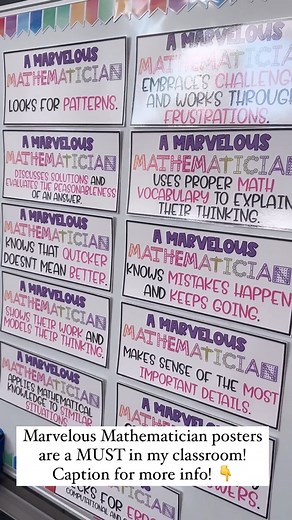 A MARVELOUS
MATHEMATICIAN
LOOKS FOR PATTERNS.
A MARVELOUS
MATHEMATICIAN
EMBRACES CHALLENG
AND WORKS THROUGH
FRUSTRATIONS.
A MARVELOUS
MATHEMATICIAN
DISCUSSES SOLUTIONS AND
EVALUATES THE REASONABLENESS
OF AN ANSWER.
A MARVELOUS
MATHEMATICIAN
USES PROPER MATH
VOCABULARY TO EXPLAIN
THEIR THINKING.
A MARVELOUS
MATHEMATICIAN
KNOWS THAT QUICKER
DOESN'T MEAN BETTER.
A MARVELOUS
MATHEMATICIAN
KNOWS MISTAKES HAPPEN
AND KEEPS GOING.
A MARVELOUS
MATHEMATICIAN
SHOWS THEIR WORK AND
MODELS THEIR THINKING.
A MARVELOUS
MATHEMATICIAN
MAKES SENSE OF THE MOST
IMPORTANT DETAILS.
A MARVELOUS
MATHEMATICIAN
APPLIES MATHEMATICAL
KNOWLEDGE TO SIMILAR
SITUATIONS
A MARVELOUS
Marvelous Mathematician posters
are a MUST in my classroom!
Caption for more info! 👇
COMPUTATIONAL AND